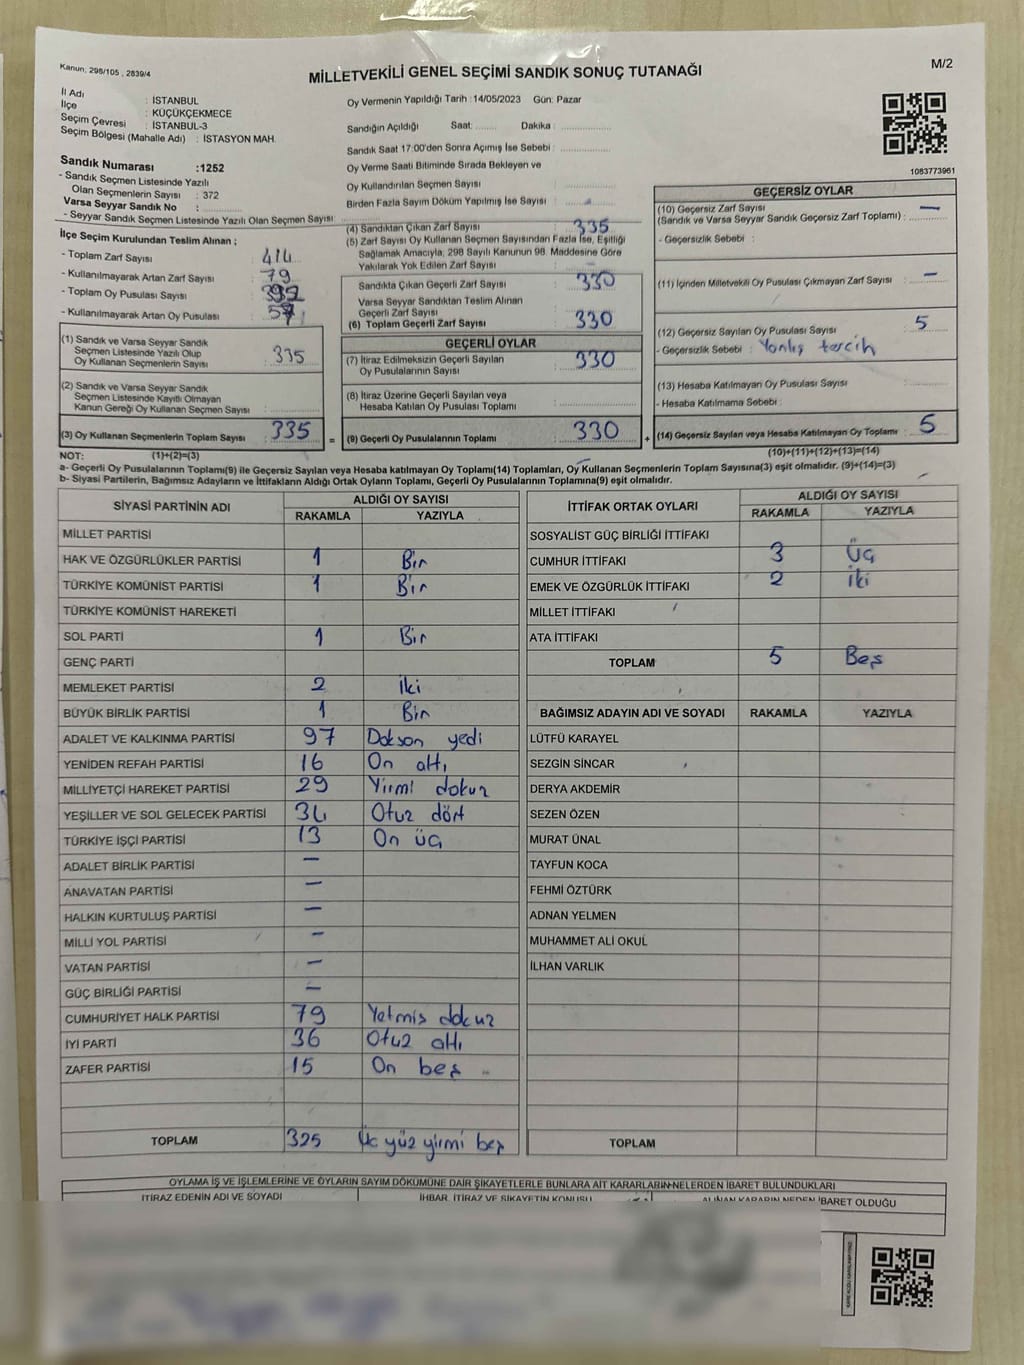 Kanun, 298/105 , 2839/4
MİLLETVEKİLİ GENEL SEÇİMİ SANDIK SONUÇ TUTANAĞI
M/2
İl Adı : İSTANBUL
İlçe : KÜÇÜKÇEKMECE
Seçim Çevresi : İSTANBUL-3
Seçim Bölgesi (Mahalle Adı) : İSTASYON MAH.
Sandık Numarası :1252
- Sandık Seçmen Listesinde Yazılı
Olan Seçmenlerin Sayısı : 372
Varsa Seyyar Sandık No :
- Seyyar Sandık Seçmen Listesinde Yazılı Olan Seçmen Sayısı
Oy Vermenin Yapıldığı Tarih :14/05/2023 Gün: Pazar
Sandığın Açıldığı Saat: Dakika :
Sandık Saat 17:00'den Sonra Açımış İse Sebebi :
Oy Verme Saati Bitiminde Sırada Bekleyen ve
Oy Kullandırılan Seçmen Sayısı :
Birden Fazla Sayım Döküm Yapılmış İse Sayısı :
1083773961
İlçe Seçim Kurulundan Teslim Alınan ;
- Toplam Zarf Sayısı : 414
- Kullanılmayarak Artan Zarf Sayısı : 79
- Toplam Oy Pusulası Sayısı :
- Kullanılmayarak Artan Oy Pusulası :
(1) Sandık ve Varsa Seyyar Sandık
Seçmen Listesinde Yazılı Olup
Oy Kullanan Seçmenlerin Sayısı : 335
(2) Sandık ve Varsa Seyyar Sandık
Seçmen Listesinde Kayıtlı Olmayan
Kanun Gereği Oy Kullanan Seçmen Sayısı :
(3) Oy Kullanan Seçmenlerin Toplam Sayısı : 335 =
(4) Sandıktan Çıkan Zarf Sayısı : 335
(5) Zarf Sayısı Oy Kullanan Seçmen Sayısından Fazla İse, Eşitliği
Sağlamak Amacıyla, 298 Sayılı Kanunun 98. Maddesine Göre
Yakılarak Yok Edilen Zarf Sayısı :
Sandıkta Çıkan Geçerli Zarf Sayısı : 330
Varsa Seyyar Sandıktan Teslim Alınan
Geçerli Zarf Sayısı :
(6) Toplam Geçerli Zarf Sayısı : 330
GEÇERLİ OYLAR
(7) İtiraz Edilmeksizin Geçerli Sayılan : 330
Oy Pusulalarının Sayısı
(8) İtiraz Üzerine Geçerli Sayılan veya
Hesaba Katılan Oy Pusulası Toplamı :
(9) Geçerli Oy Pusulalarının Toplamı : 330 +
GEÇERSİZ OYLAR
(10) Geçersiz Zarf Sayısı –
(Sandık ve Varsa Seyyar Sandık Geçersiz Zarf Toplamı) :
- Geçersizlik Sebebi :
(11) İçinden Milletvekili Oy Pusulası Çıkmayan Zarf Sayısı : –
(12) Geçersiz Sayılan Oy Pusulası Sayısı : 5
- Geçersizlik Sebebi : Yanlış tercih
(13) Hesaba Katılmayan Oy Pusulası Sayısı :
- Hesaba Katılmama Sebebi :
(14) Geçersiz Sayılan veya Hesaba Katılmayan Oy Toplamı : 5
NOT: (1)+(2)=(3) (10)+(11)+(12)+(13)=(14)
a- Geçerli Oy Pusulalarının Toplamı(9) ile Geçersiz Sayılan veya Hesaba katılmayan Oy Toplamı(14) Toplamları, Oy Kullanan Seçmenlerin Toplam Sayısına(3) eşit olmalıdır. (9)+(14)=(3)
b- Siyasi Partilerin, Bağımsız Adayların ve İttifakların Aldığı Ortak Oyların Toplamı, Geçerli Oy Pusulalarının Toplamına(9) eşit olmalıdır.
SİYASİ PARTİNİN ADI ALDIĞI OY SAYISI
RAKAMLA YAZIYLA
MİLLET PARTİSİ
HAK VE ÖZGÜRLÜKLER PARTİSİ 1 Bir
TÜRKİYE KOMÜNİST PARTİSİ 1 Bir
TÜRKİYE KOMÜNİST HAREKETİ
SOL PARTİ 1 Bir
GENÇ PARTİ
MEMLEKET PARTİSİ 2 İki
BÜYÜK BİRLİK PARTİSİ 1 Bir
ADALET VE KALKINMA PARTİSİ 97 Doksan yedi
YENİDEN REFAH PARTİSİ 16 On altı
MİLLİYETÇİ HAREKET PARTİSİ 29 Yirmi dokuz
YEŞİLLER VE SOL GELECEK PARTİSİ 34 Otuz dört
TÜRKİYE İŞÇİ PARTİSİ 13 On üç
ADALET BİRLİK PARTİSİ –
ANAVATAN PARTİSİ –
HALKIN KURTULUŞ PARTİSİ –
MİLLİ YOL PARTİSİ –
VATAN PARTİSİ –
GÜÇ BİRLİĞİ PARTİSİ –
CUMHURİYET HALK PARTİSİ 79 Yetmis dokuz
İYİ PARTİ 36 Otuz altı
ZAFER PARTİSİ 15 On beş
TOPLAM 325 Üç yüz yirmi beş
İTTİFAK ORTAK OYLARI ALDIĞI OY SAYISI
RAKAMLA YAZIYLA
SOSYALİST GÜÇ BİRLİĞİ İTTİFAKI
CUMHUR İTTİFAKI 3 Üç
EMEK VE ÖZGÜRLÜK İTTİFAKI 2 İki
MİLLET İTTİFAKI
ATA İTTİFAKI
TOPLAM 5 Beş
BAĞIMSIZ ADAYIN ADI VE SOYADI RAKAMLA YAZIYLA
LÜTFÜ KARAYEL
SEZGİN SİNCAR
DERYA AKDEMİR
SEZEN ÖZEN
MURAT ÜNAL
TAYFUN KOCA
FEHMİ ÖZTÜRK
ADNAN YELMEN
MUHAMMET ALİ OKUL
İLHAN VARLIK
TOPLAM
OYLAMA İŞ VE İŞLEMLERİNE VE OYLARIN SAYIM DÖKÜMÜNE DAİR ŞİKAYETLERLE BUNLARA AİT KARARLARIN NELERDEN İBARET BULUNDUKLARI
İTİRAZ EDENİN ADI VE SOYADI İHBAR, İTİRAZ VE ŞİKAYETİN KONUSU ALINAN KARARIN NEDEN İBARET OLDUĞU